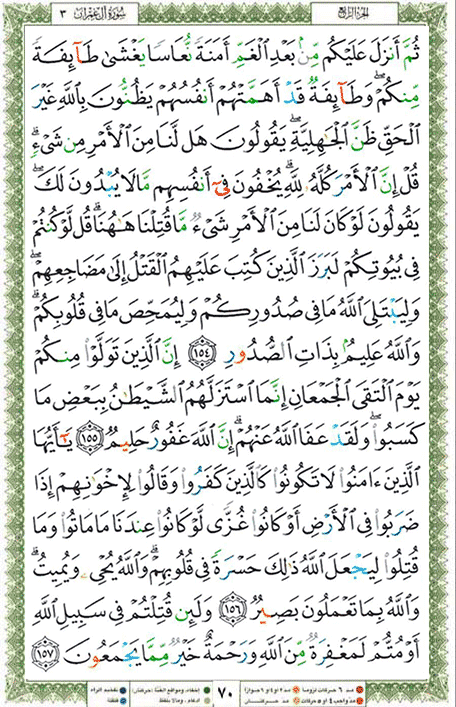 الجزء الرابع
سورة آل عمران ٣
ثُمَّ أَنزَلَ عَلَيْكُم مِّنۢ بَعْدِ ٱلْغَمِّ أَمَنَةً نُّعَاسًا يَغْشَىٰ طَآئِفَةً
مِّنكُمْ ۖ وَطَآئِفَةٌ قَدْ أَهَمَّتْهُمْ أَنفُسُهُمْ يَظُنُّونَ بِٱللَّهِ غَيْرَ
ٱلْحَقِّ ظَنَّ ٱلْجَـٰهِلِيَّةِ ۖ يَقُولُونَ هَل لَّنَا مِنَ ٱلْأَمْرِ مِن شَىْءٍ ۗ
قُلْ إِنَّ ٱلْأَمْرَ كُلَّهُۥ لِلَّهِ ۗ يُخْفُونَ فِىٓ أَنفُسِهِم مَّا لَا يُبْدُونَ لَكَ ۖ
يَقُولُونَ لَوْ كَانَ لَنَا مِنَ ٱلْأَمْرِ شَىْءٌ مَّا قُتِلْنَا هَـٰهُنَا ۗ قُل لَّوْ كُنتُمْ
فِى بُيُوتِكُمْ لَبَرَزَ ٱلَّذِينَ كُتِبَ عَلَيْهِمُ ٱلْقَتْلُ إِلَىٰ مَضَاجِعِهِمْ ۖ
وَلِيَبْتَلِىَ ٱللَّهُ مَا فِى صُدُورِكُمْ وَلِيُمَحِّصَ مَا فِى قُلُوبِكُمْ ۗ
وَٱللَّهُ عَلِيمٌۢ بِذَاتِ ٱلصُّدُورِ ١٥٤ إِنَّ ٱلَّذِينَ تَوَلَّوْا۟ مِنكُمْ
يَوْمَ ٱلْتَقَى ٱلْجَمْعَانِ إِنَّمَا ٱسْتَزَلَّهُمُ ٱلشَّيْطَـٰنُ بِبَعْضِ مَا
كَسَبُوا۟ ۖ وَلَقَدْ عَفَا ٱللَّهُ عَنْهُمْ ۗ إِنَّ ٱللَّهَ غَفُورٌ حَلِيمٌ ١٥٥ يَـٰٓأَيُّهَا
ٱلَّذِينَ ءَامَنُوا۟ لَا تَكُونُوا۟ كَٱلَّذِينَ كَفَرُوا۟ وَقَالُوا۟ لِإِخْوَٰنِهِمْ إِذَا
ضَرَبُوا۟ فِى ٱلْأَرْضِ أَوْ كَانُوا۟ غُزًّى لَّوْ كَانُوا۟ عِندَنَا مَا مَاتُوا۟ وَمَا
قُتِلُوا۟ لِيَجْعَلَ ٱللَّهُ ذَٰلِكَ حَسْرَةً فِى قُلُوبِهِمْ ۗ وَٱللَّهُ يُحْىِۦ وَيُمِيتُ ۗ
وَٱللَّهُ بِمَا تَعْمَلُونَ بَصِيرٌ ١٥٦ وَلَئِن قُتِلْتُمْ فِى سَبِيلِ ٱللَّهِ
أَوْ مُتُّمْ لَمَغْفِرَةٌ مِّنَ ٱللَّهِ وَرَحْمَةٌ خَيْرٌ مِّمَّا يَجْمَعُونَ ١٥٧
٧٠
مد ٦ حركات لزوما
مد ٢ او ٤ او ٦ جوازا
مد حركتان
قلقلة